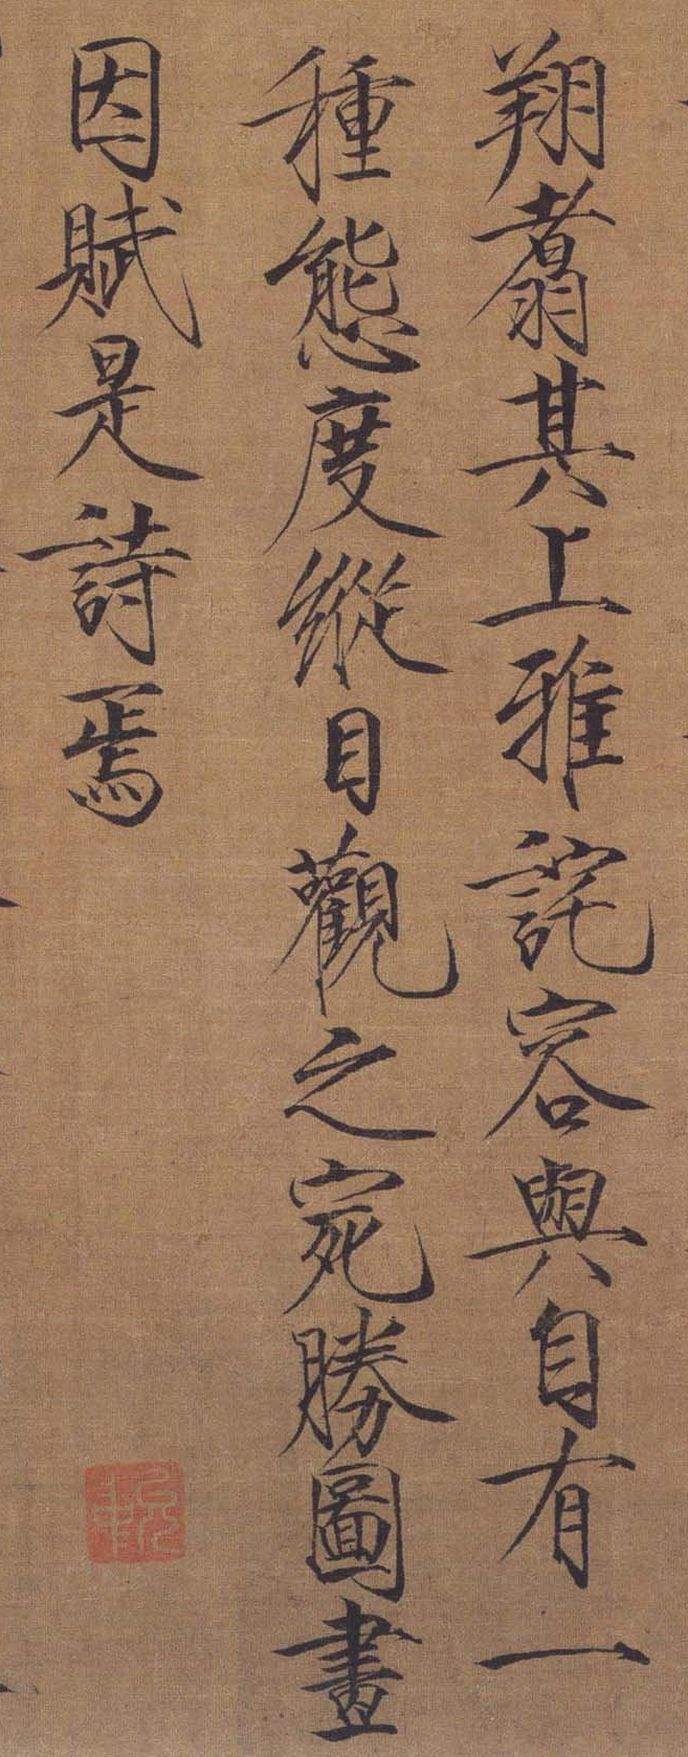 翔翥其上雅詫容與自有一
種態度縱目觀之宛勝圖畫
因賦是詩焉